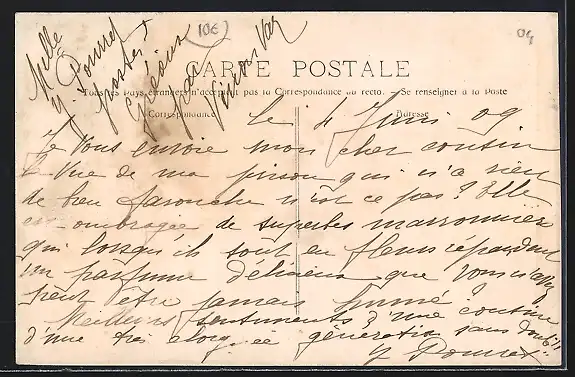 Mlle
Y. Pourret
postes
Grésieu
par
(10€)
04
CARTE POSTALE
Tous les Pays étrangers n'acceptent pas la Correspondance au recto. - Se renseigner à la Poste
Correspondance
Adresse
le 4 Juni 09
Je vous envoie mon cher cousin
la vue de ma prison qui n'a rien
de bien farouche n'est ce pas? Elle
est ombragée de superbes marronniers
qui lorsqu'ils sont en fleurs répandent
un parfum délicieux que vous n'avez
peut être jamais humé?
Meilleurs sentiments d'une cousine
d'une très génération sans doute!!
Y Pourret